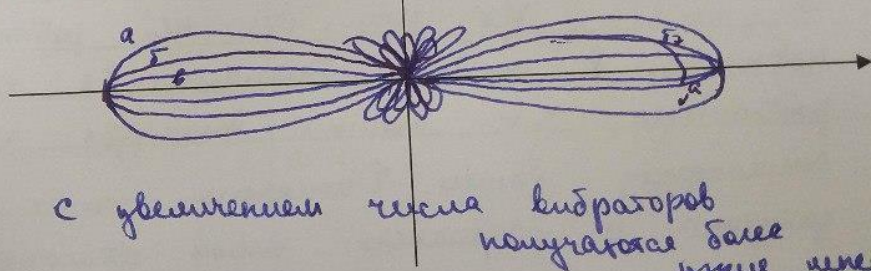 а
б
в
а
с увеличением числа вибраторов
получаются более